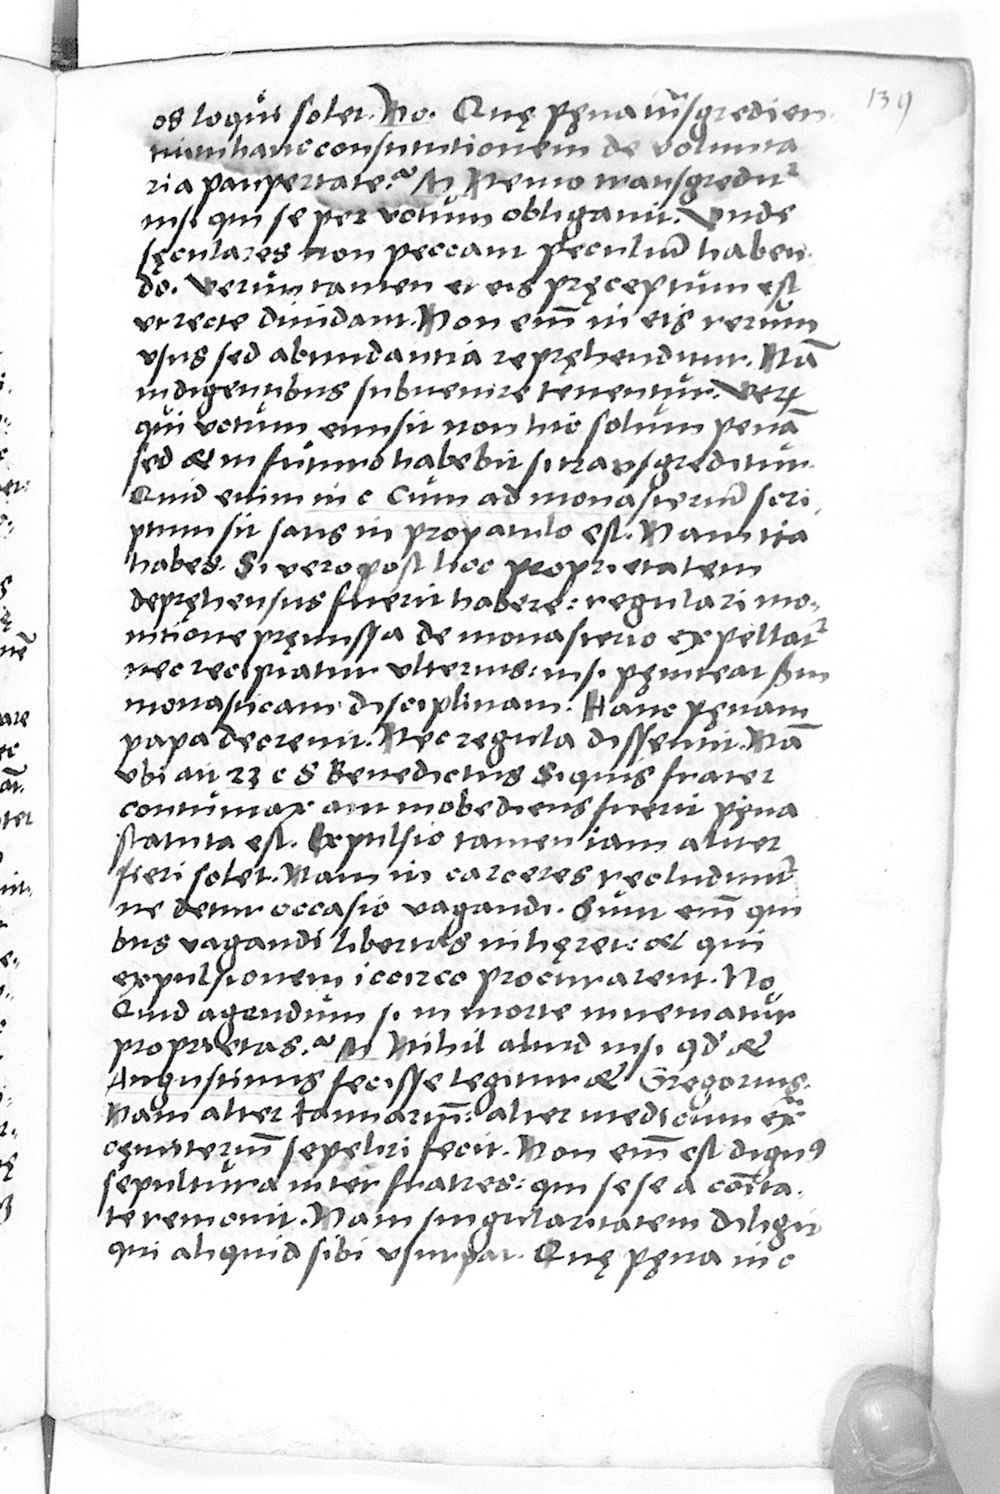 139
os loqui solet. No. Quę pęna trãsgredien
tium hanc constitutionem de volunta
ria paupertate? M Nemo transgreditr
nisi qui se per votum obligauit. Vnde
sęculares non peccant peculiũ haben
do. Veruntamen et eis pręceptum est
vt recte diuidant. Non em̃ in eis rerum
vsus sed abundantia repręhenditur. Nã
indigentibus subuenire tenentur. Verꝝ
qui votum emisit non hic solum penã
sed & in futuro habebit si transgreditur.
Quid enim in c Cum ad monasteriũ scri
ptum sit satis in propatulo est. Nam ita
habes. Si vero post hoc proprietatem
depręhensus fuerit habere: regulari mo-
nitione pręmissa de monasterio expellatr
nec recipiatur vlterius: nisi pęniteat scđm
monasticam disciplinam. Hanc pęnam
papa decreuit. Nec regula dissentit. Nã
vbi ait 23 c S Benedictus Si quis frater
contumax aut inobediens fuerit pęna
statuta est. Expulsio tamen iam aliter
fieri solet. Nam in carceres recluduntr
ne detur occasio vagandi. Sunt em̃ qui
bus vagandi libertas inhęret: & qui
expulsionem iccirco procurarent. No
Quid agendum si in morte inueniatur
proprietas? M Nihil aliud nisi qd &
Augustinus fecisse legitur & Gregorius.
Nam alter Ianuariũ: alter medicum ex̃
cęmiteriũ sepeliri fecit. Non em̃ est dignꝰ
sepultura inter fratres: qui sese a cõĩta
te remouit. Nam singularitatem diligit
qui aliquid sibi vsurpat. Quę pęna in c